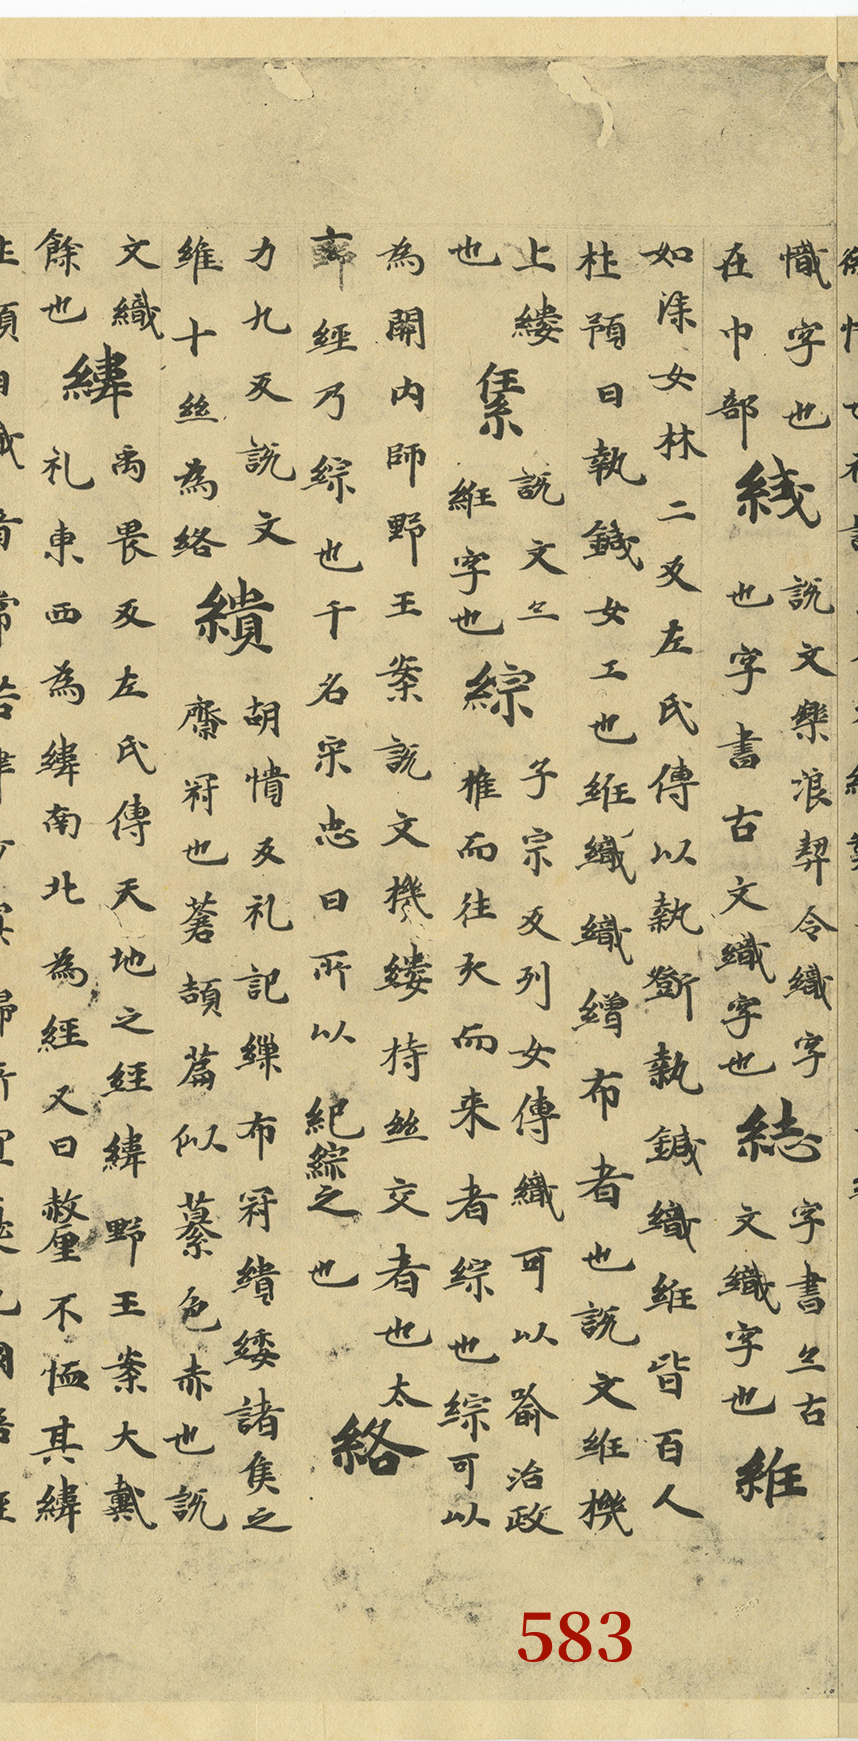 幟字也
在巾部
綫
說文樂浪挈令織字
也字書古文織字也
綕
字書亠古
文織字也
紝
如深女林二反左氏傳以執斵執鍼織紝皆百人
杜預曰執鍼女工也紝織織繒布者也說文紝機
上縷
也
䋕
說文亠
紝字也
綜
子宗反列女傳織可以喻治政
推而往矣而来者綜也綜可以
為關内師野王案說文機縷持絲交者也太
經乃綜也千名宋忠曰所以紀綜之也
綹
力九反說文
維十絲為綹
繢
胡憒反礼記緇布冠繢緌諸侯之
齋冠也蒼頡篇似纂色赤也說
文織
餘也
緯
禹畏反左氏傳天地之經緯野王案大戴
礼東西為緯南北為經又曰嫠不恤其緯
583